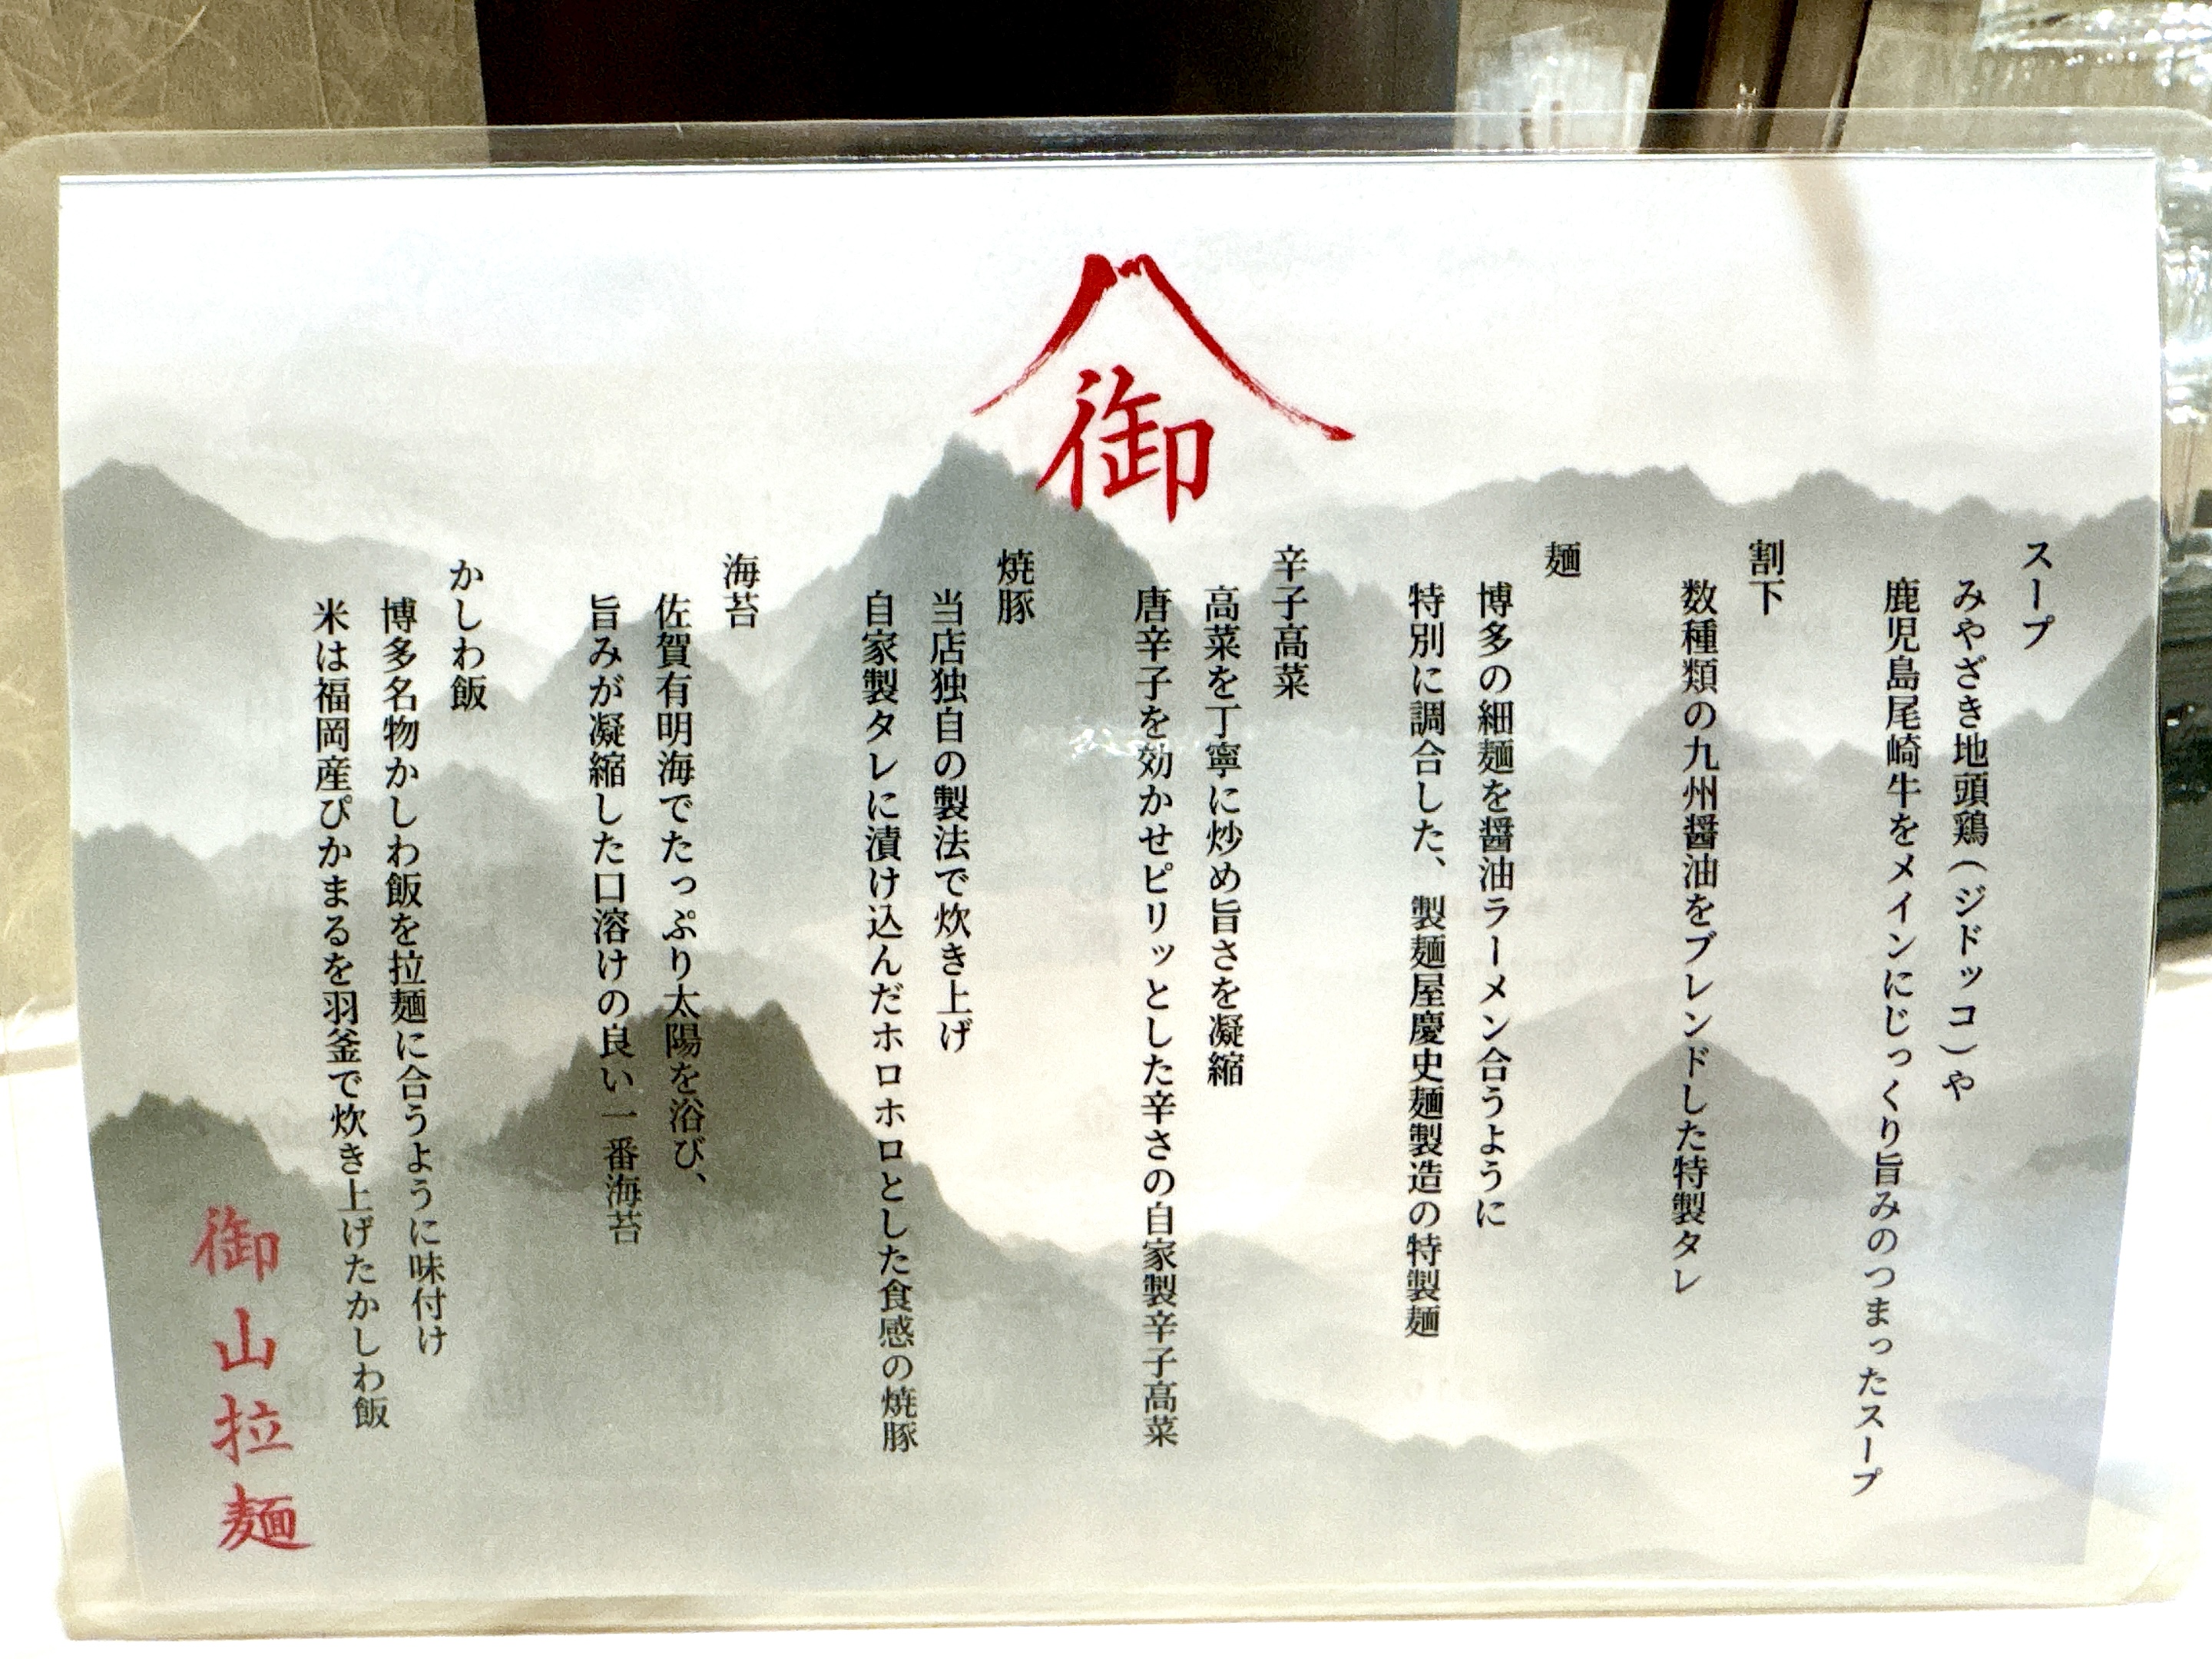 御
スープ
みやざき地頭鶏(ジドッコ)や
鹿児島尾崎牛をメインにじっくり旨みのつまったスープ
割下
数種類の九州醤油をブレンドした特製タレ
麺
博多の細麺を醤油ラーメン合うように
特別に調合した、製麺屋慶史麺製造の特製麺
辛子高菜
高菜を丁寧に炒め旨さを凝縮
唐辛子を効かせピリッとした辛さの自家製辛子高菜
焼豚
当店独自の製法で炊き上げ
自家製タレに漬け込んだホロホロとした食感の焼豚
海苔
佐賀有明海でたっぷり太陽を浴び、
旨みが凝縮した口溶けの良い一番海苔
かしわ飯
博多名物かしわ飯を拉麺に合うように味付け
米は福岡産ぴかまるを羽釜で炊き上げたかしわ飯
御山拉麺